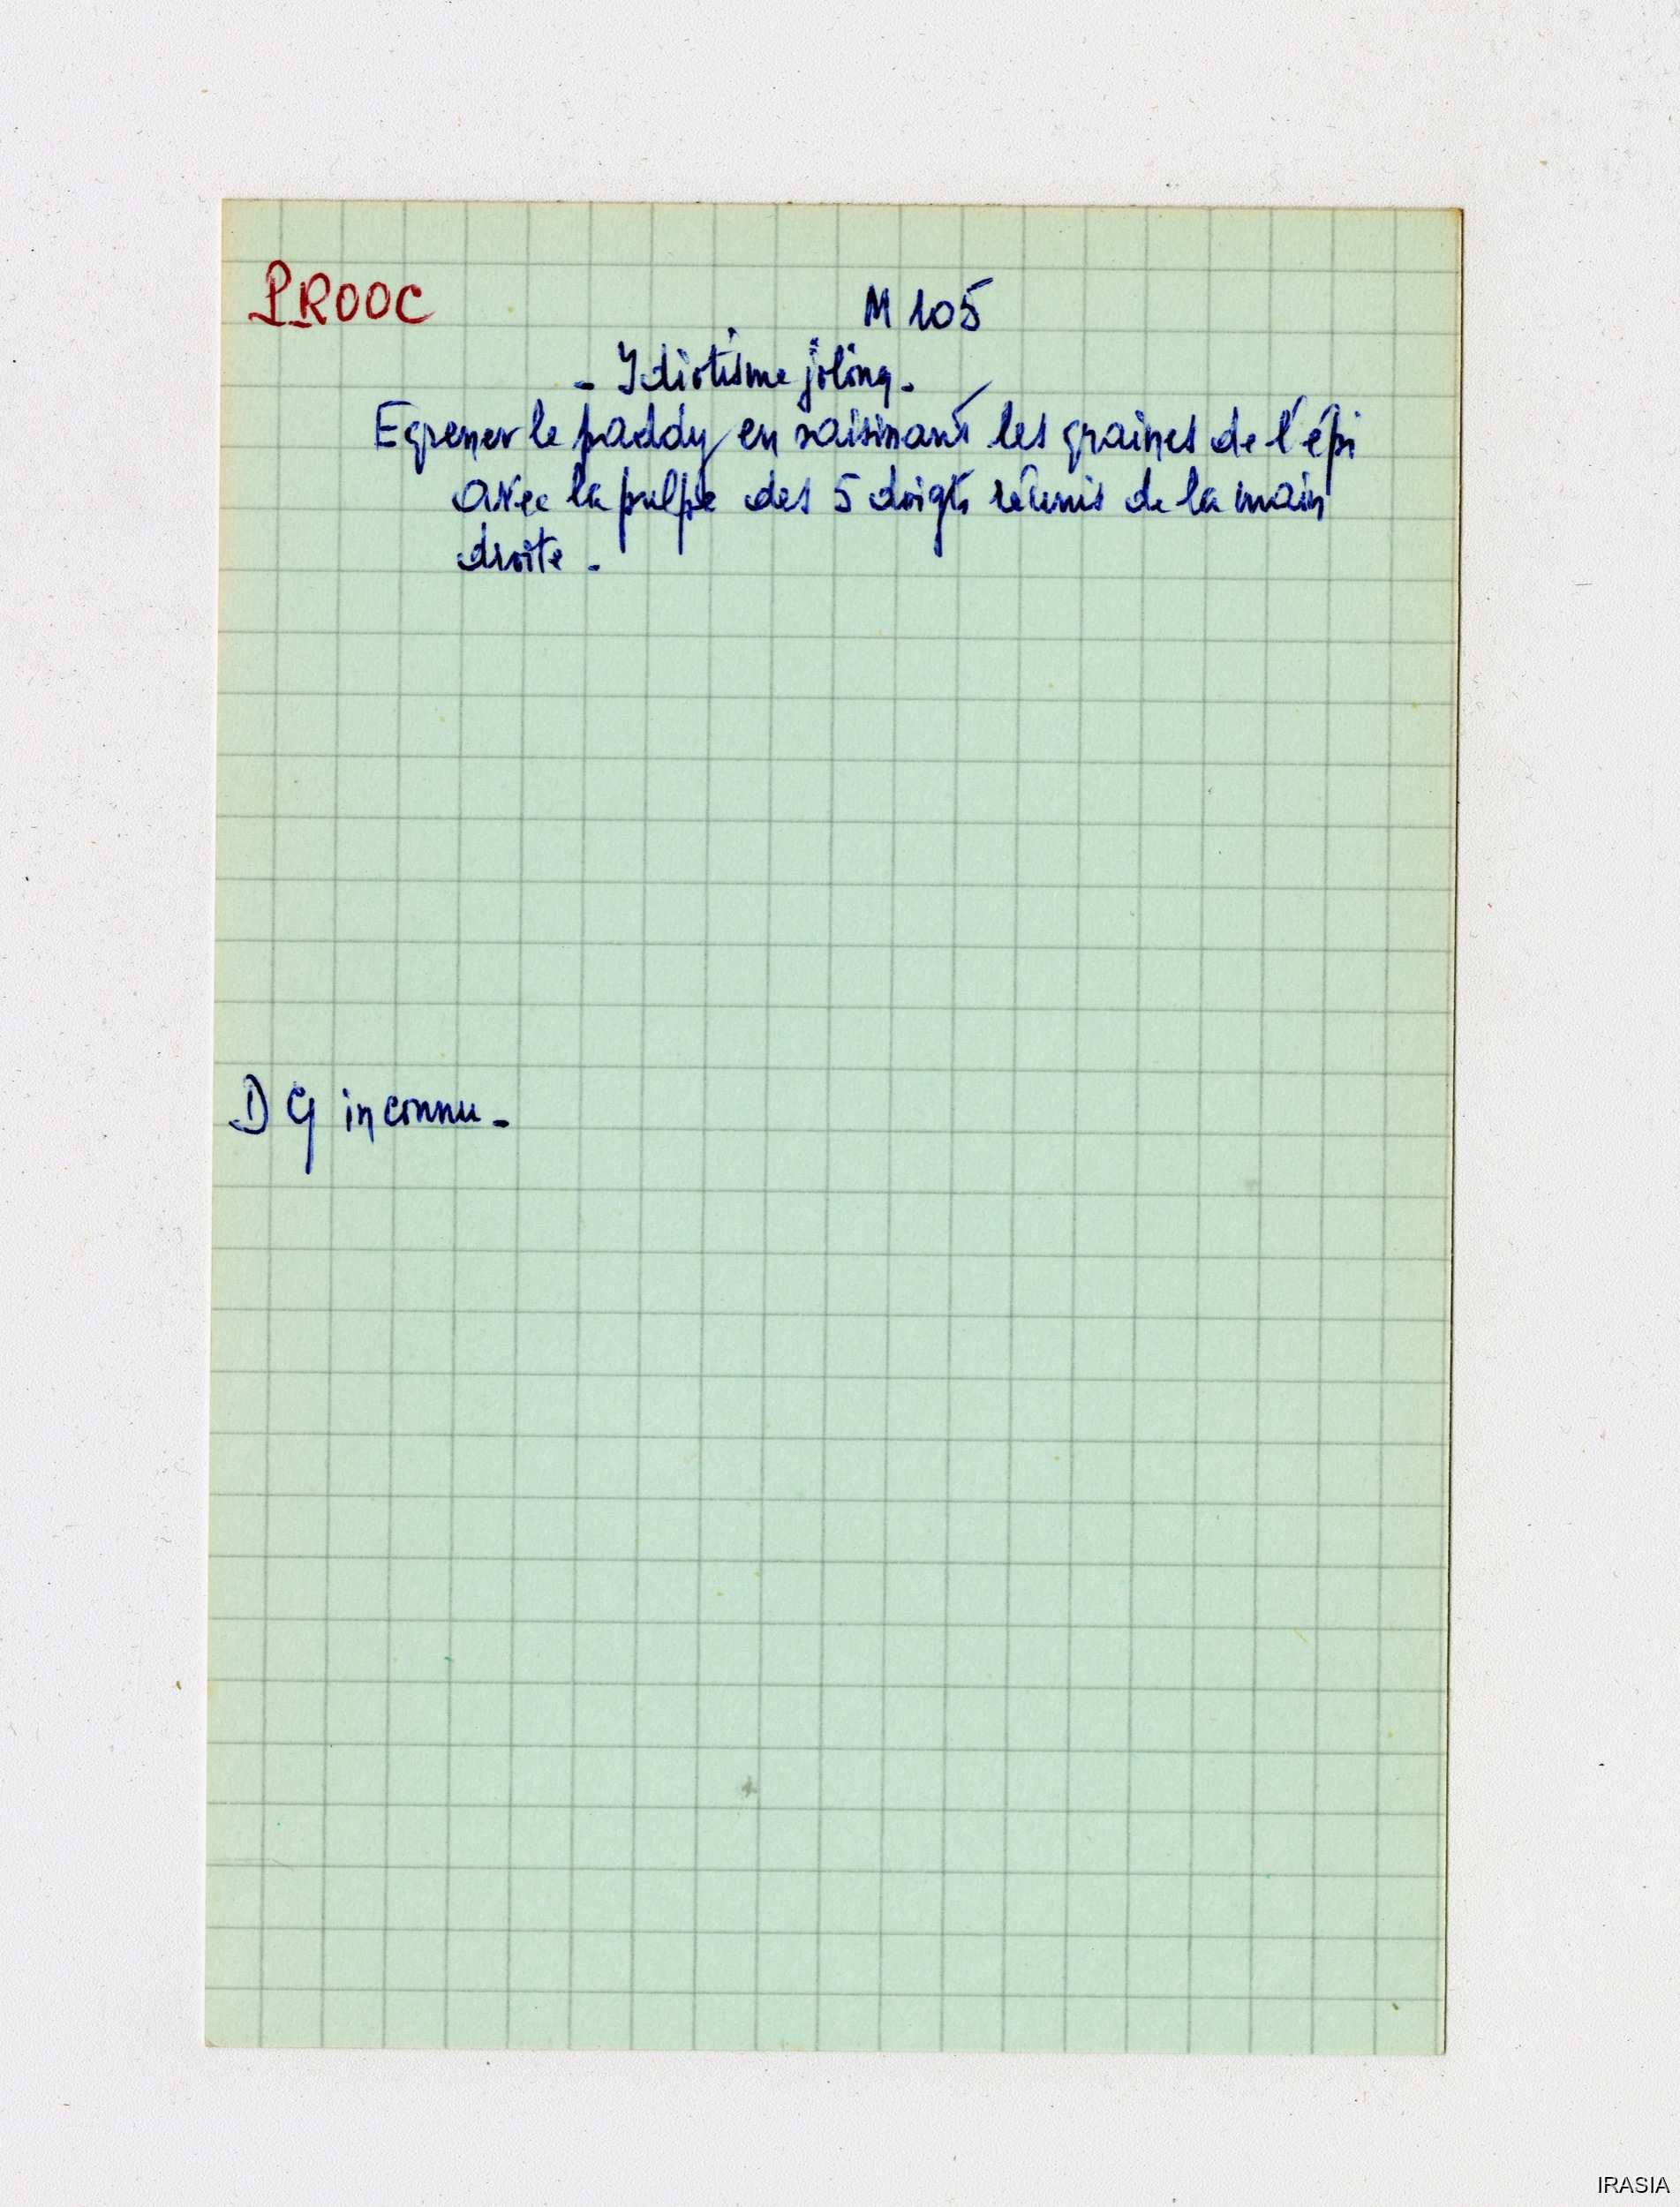 PROOC
M 105
- Idiotisme jölöng -
Egrener le paddy en saisissant les graines de l'épi
avec la pulpe des 5 doigts réunis de la main
droite -
DG inconnu -
IRASIA